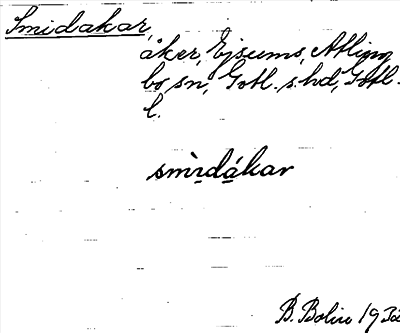 Smidakar,
åker, Ejsums, Atling
bo sn, Gotl. s. hd, Gotl.
l.
smìdákar
B. Bolin 19